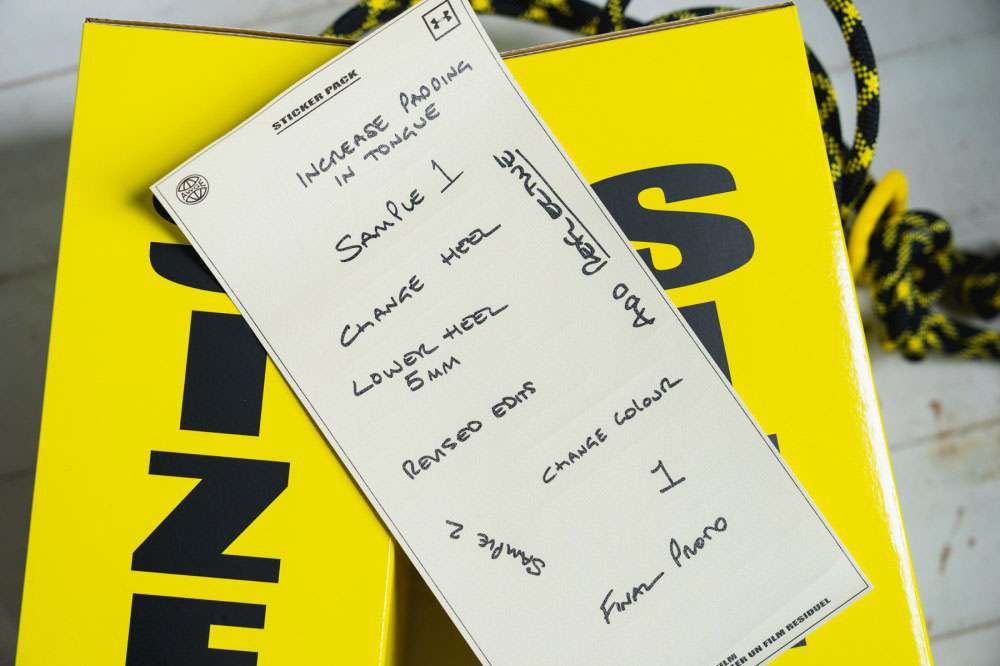 STICKER PACK
INCREASE PADDING
IN TONGUE
SAMPLE 1
CHANGE HEEL
LOWER HEEL
5MM
REVISED EDITS
ADD
CHANGE COLOUR
1
SAMPLE 2
FINAL PROTO
FILM
UN FILM RESIDUEL
S
I
Z
E
S